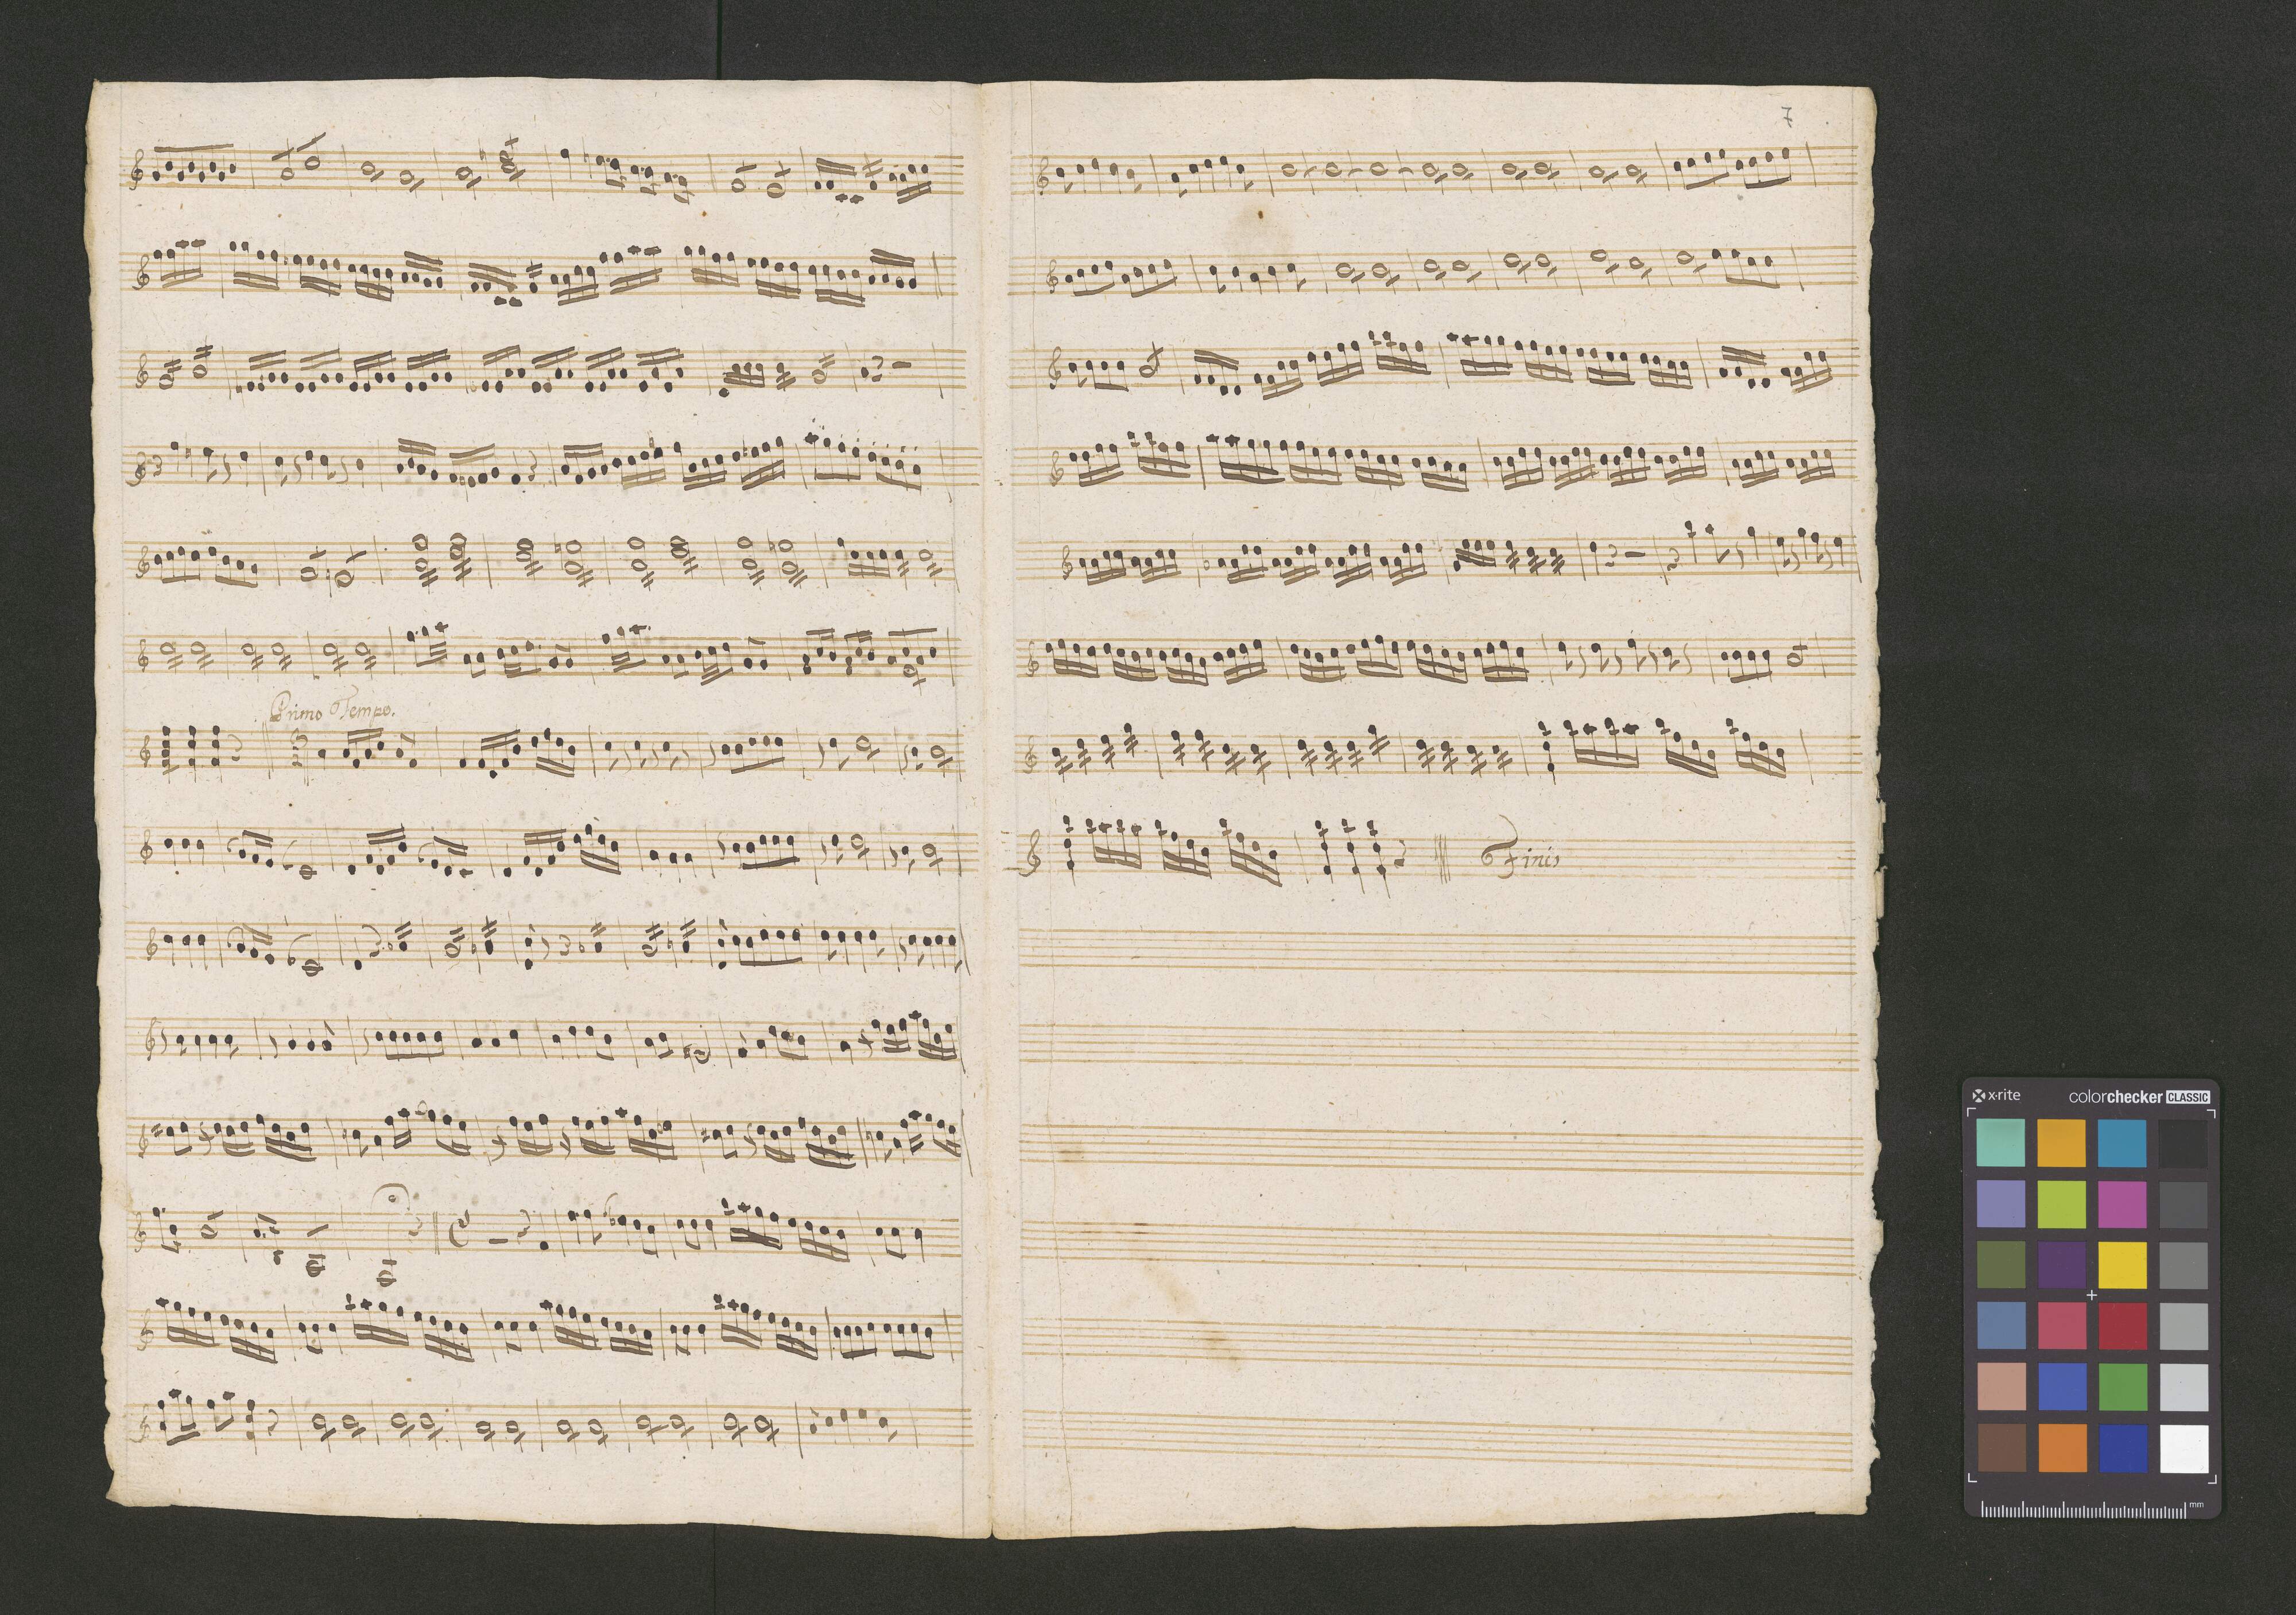 Primo Tempo.
7
Finis
x-rite
colorchecker CLASSIC
mm